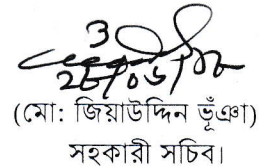 ২৮/০৬/০৮
(মো: জিয়াউদ্দিন ভূঁঞা)
সহকারী সচিব।